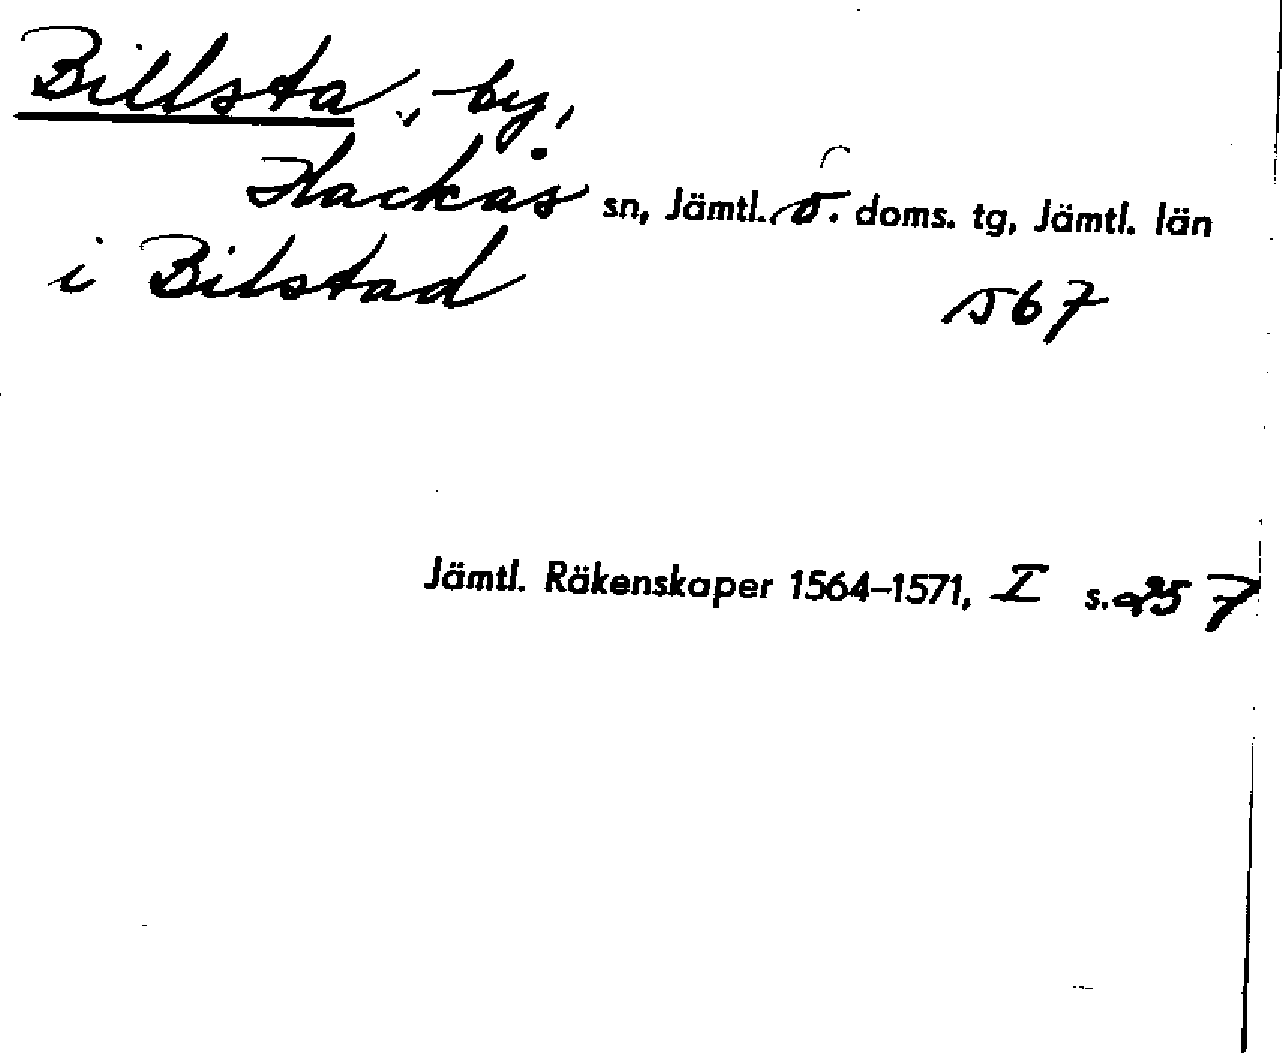 Billsta, by,
Hackås sn, Jämtl. ö. doms. tg, Jämtl. län
i Bilstad 567
Jämtl. Räkenskaper 1564–1571, I s. 257